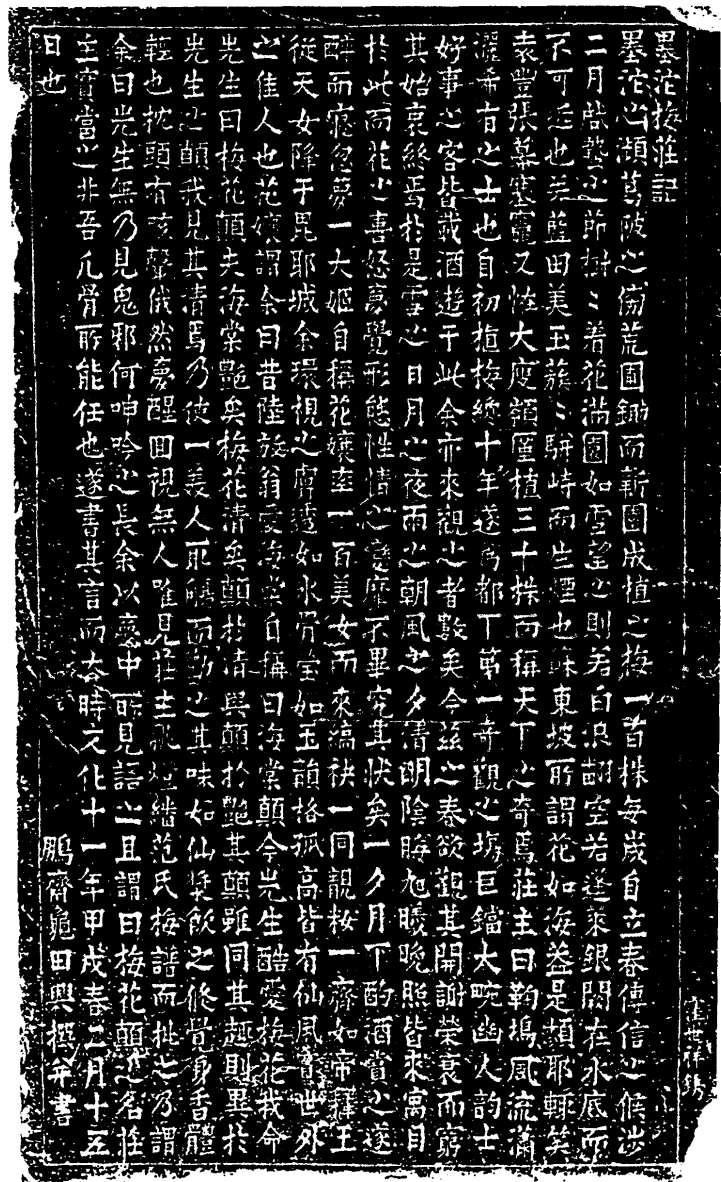 墨沱梅莊記
墨沱之濒葛陂之傍荒園鋤而新園成植之梅一百株每歲自立春傳信之候涉
二月啟蟄之節樹〻着花滿園如雪望之則若白浪翻空若蓬萊銀闕在水底而
不可近也若藍田美玉蔟〻駢峙而生煙也蘇東坡所謂花如海蓋是類耶輙笑
袁豐張幕塞竈又怪大庾嶺僅植三十株而稱天下之奇焉莊主曰鞠塢風流瀟
灑希有之士也自初植梅纔十年遂為都下第一奇觀之場巨鐺大畹幽人韵士
好事之客皆載酒遊于此余亦來觀之者數矣今茲之春欲觀其開謝榮衰而窮
其始衰終焉於是雪之日月之夜雨之朝風之夕清明陰晦旭曦晚照皆來寓目
於此而花之喜怒夢覺形態性情之變靡不畢究其狀矣一夕月下酌酒賞之遂
醉而寤忽夢一大姬自稱花孃率一百美女而來縞袂一同靚粧一齋如帝釋王
從天女降于毘耶城余環視之膚透如水骨瑩如玉韻格孤高皆有仙風實世外
之佳人也花孃謂余曰昔陸放翁愛海棠自稱曰海棠顛今先生酷愛梅花我命
先生曰梅花顛夫海棠艷矣梅花清矣顛於清與顛於艷其顛雖同其趣則異於
先生之顛我見其清焉乃使一美人取觴而勸之其味如仙漿飲之修覺身香體
輕也枕頭有咳聲俄然夢醒囬視無人唯見莊主挑燈繙范氏梅譜而批之乃謂
余曰先生無乃見鬼邪何呻吟之長余以夢中所見語之且謂曰梅花顛之名莊
主實當之非吾凡骨所能任也遂書其言而去時文化十一年甲戌春二月十五
日也
鵬齋龜田興撰并書
窪世祥鐫